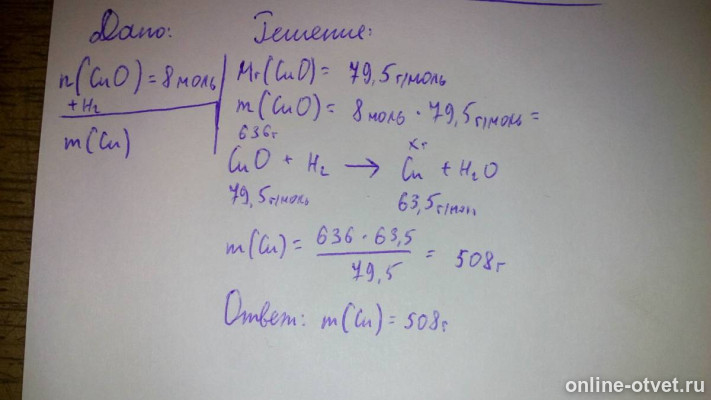 Дано:
n(CuO) = 8 моль
+ H₂
m(Cu)
Решение:
Mr(CuO) = 79,5 г/моль
m(CuO) = 8 моль · 79,5 г/моль =
636г   xг
CuO + H₂ → Cu + H₂O
79,5 г/моль   63,5 г/моль
m(Cu) = 636 · 63,5 / 79,5 = 508 г
Ответ: m(Cu) = 508 г
online-otvet.ru